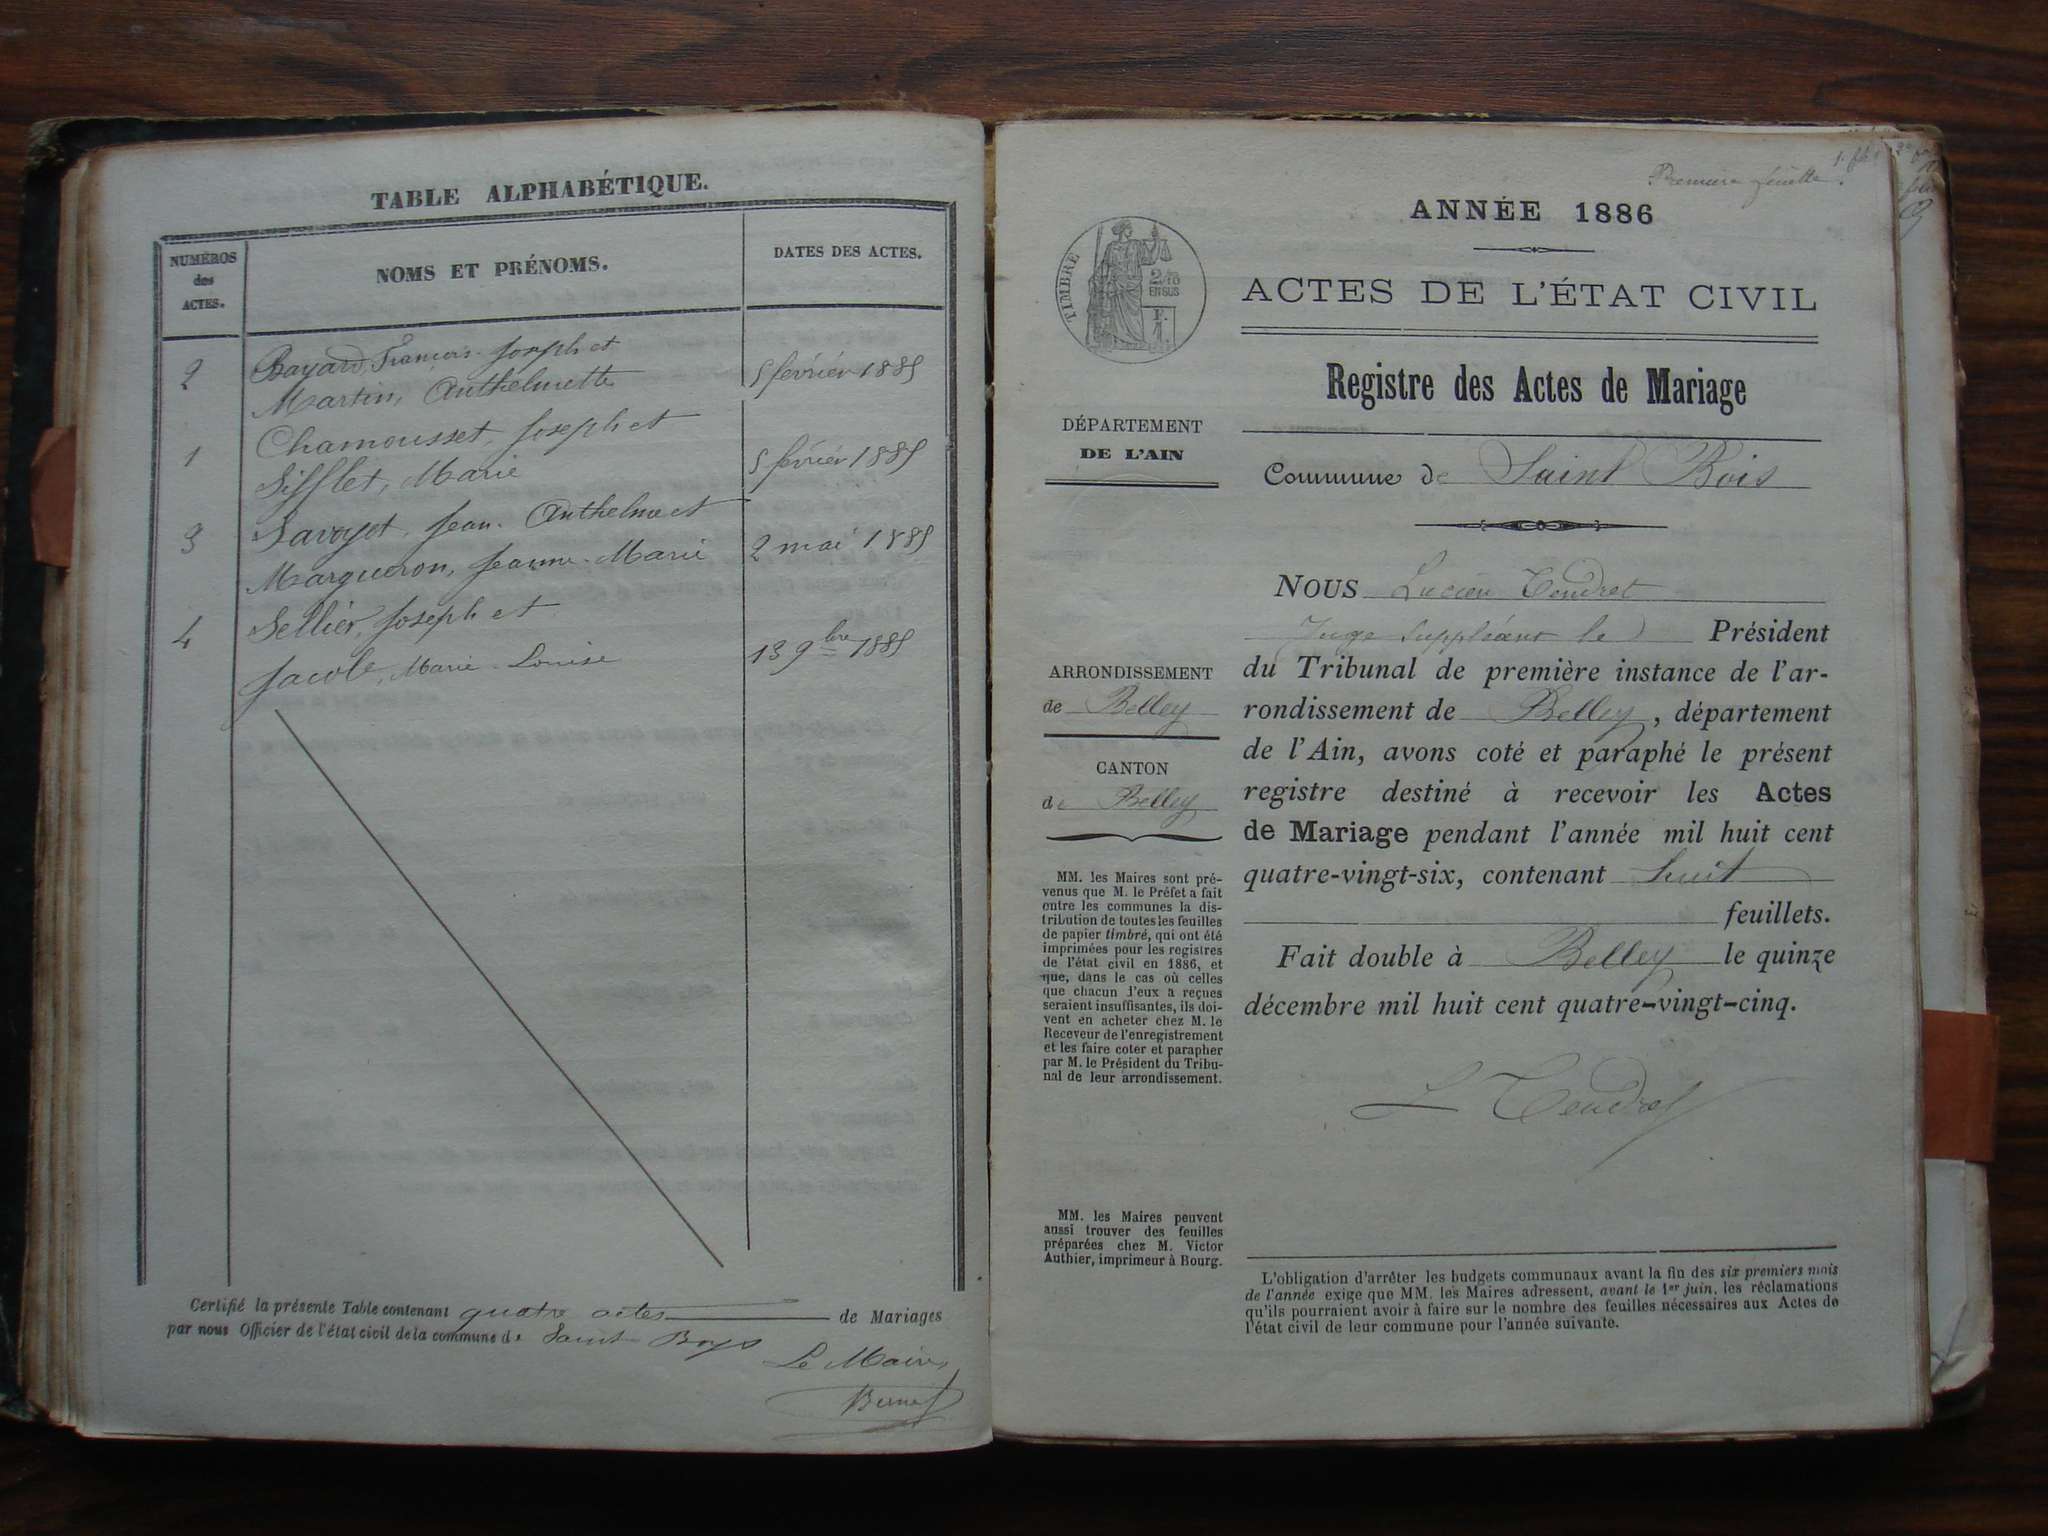 TABLE ALPHABÉTIQUE.
NUMÉROS
des
ACTES.
NOMS ET PRÉNOMS.
DATES DES ACTES.
2
Bayard, François-Joseph et
Martin, Anthelmette
5 février 1885
1
Chamousset, Joseph et
Sifflet, Marie
5 février 1885
3
Savoyet, Jean-Anthelme et
Margueron, Jeanne-Marie
2 mai 1885
4
Sellier, Joseph et
Jacole, Marie-Louise
13 9bre 1885
Certifié la présente Table contenant quatre actes de Mariages
par nous Officier de l'état civil de la commune de Saint-Boys
Le Maire,
Première feuille
ANNÉE 1886
TIMBRE
2/10
EN SUS
F.
1
ACTES DE L'ÉTAT CIVIL
Registre des Actes de Mariage
DÉPARTEMENT
DE L'AIN
Commune de Saint Bois
NOUS Lucien Tendret
Juge Suppléant le Président
du Tribunal de première instance de l'ar-
rondissement de Belley, département
de l'Ain, avons coté et paraphé le présent
registre destiné à recevoir les Actes
de Mariage pendant l'année mil huit cent
quatre-vingt-six, contenant huit
feuillets.
Fait double à Belley le quinze
décembre mil huit cent quatre-vingt-cinq.
L Tendret
ARRONDISSEMENT
de Belley
CANTON
de Belley
MM. les Maires sont pré-
venus que M. le Préfet a fait
entre les communes la dis-
tribution de toutes les feuilles
de papier timbré, qui ont été
imprimées pour les registres
de l'état civil en 1886, et
que, dans le cas où celles
que chacun d'eux a reçues
seraient insuffisantes, ils doi-
vent en acheter chez M. le
Receveur de l'enregistrement
et les faire coter et parapher
par M. le Président du Tribu-
nal de leur arrondissement.
MM. les Maires peuvent
aussi trouver des feuilles
préparées chez M. Victor
Authier, imprimeur à Bourg.
L'obligation d'arrêter les budgets communaux avant la fin des six premiers mois
de l'année exige que MM. les Maires adressent, avant le 1er juin, les réclamations
qu'ils pourraient avoir à faire sur le nombre des feuilles nécessaires aux Actes de
l'état civil de leur commune pour l'année suivante.